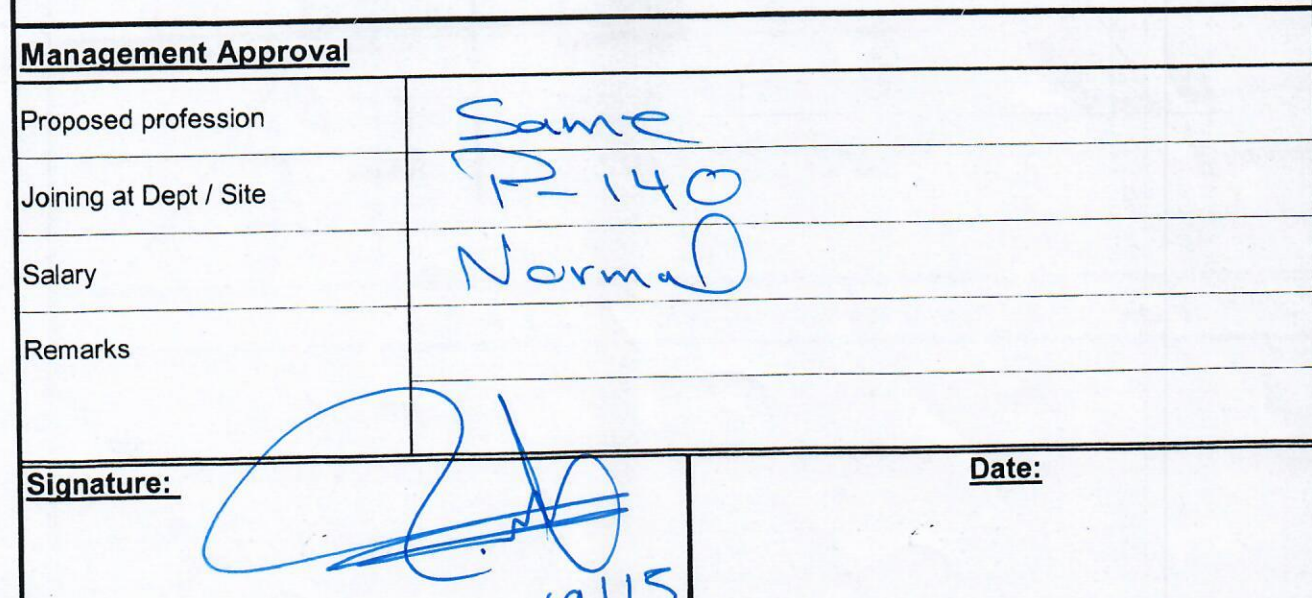 Management Approval
Proposed profession Same
Joining at Dept / Site P-140
Salary Normal
Remarks
Signature: Date: